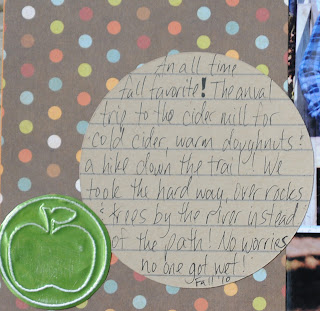 An all time
fall favorite! The anual
trip to the cider mill for
cold cider, warm doughnuts &
a hike down the trail! We
took the hard way, over rocks
& trees by the river instead
of the path! No worries
no one got wet!
Fall '10